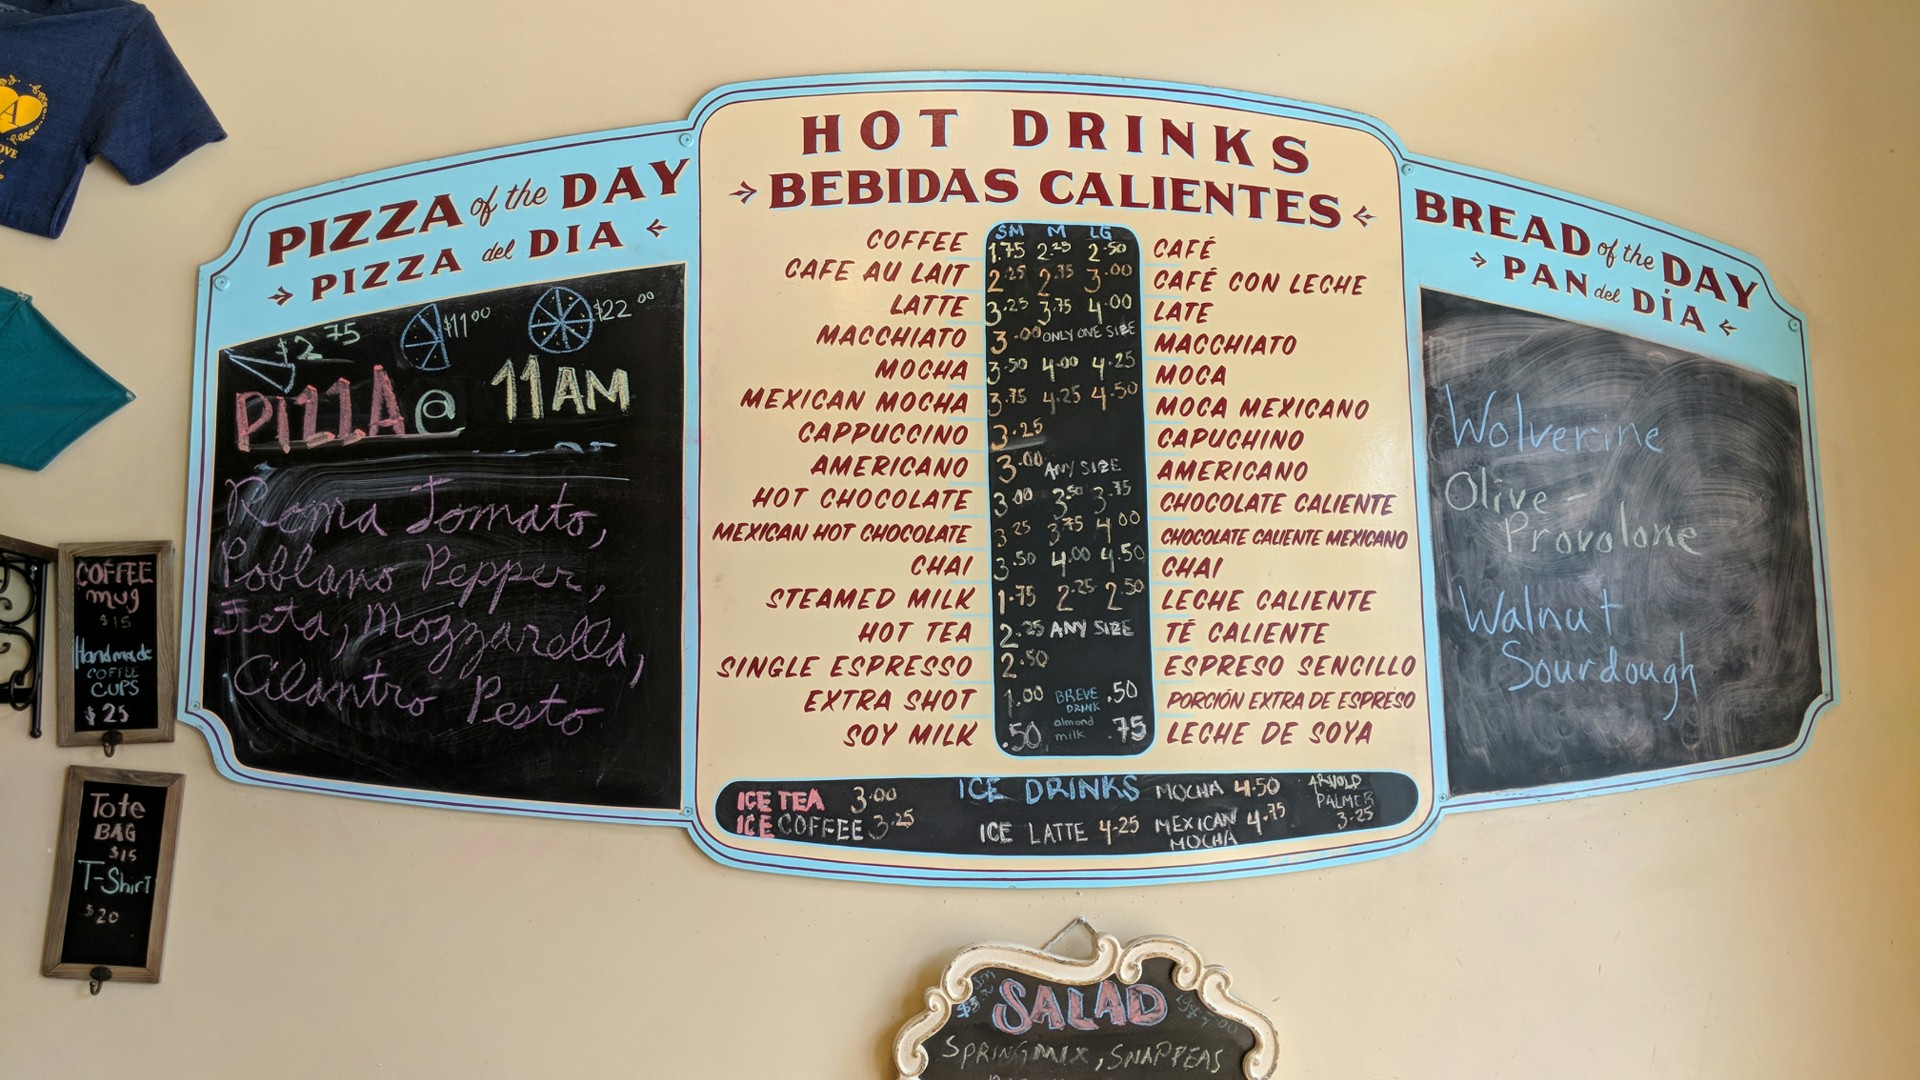 A
OVE
COFFEE
mug
$15
Handmade
COFFEE
CUPS
$25
Tote
BAG
$15
T-Shirt
$20
PIZZA of the DAY
PIZZA del DIA
$2.75 $11.00 $22.00
PIZZA @ 11AM
Roma Tomato,
Poblano Pepper,
Feta, Mozzarella,
Cilantro Pesto
HOT DRINKS
BEBIDAS CALIENTES
SM M LG
COFFEE 1.75 2.25 2.50 CAFÉ
CAFE AU LAIT 2.25 2.75 3.00 CAFÉ CON LECHE
LATTE 3.25 3.75 4.00 LATE
MACCHIATO 3.00 ONLY ONE SIZE MACCHIATO
MOCHA 3.50 4.00 4.25 MOCA
MEXICAN MOCHA 3.75 4.25 4.50 MOCA MEXICANO
CAPPUCCINO 3.25 CAPUCHINO
AMERICANO 3.00 ANY SIZE AMERICANO
HOT CHOCOLATE 3.00 3.50 3.75 CHOCOLATE CALIENTE
MEXICAN HOT CHOCOLATE 3.25 3.75 4.00 CHOCOLATE CALIENTE MEXICANO
CHAI 3.50 4.00 4.50 CHAI
STEAMED MILK 1.75 2.25 2.50 LECHE CALIENTE
HOT TEA 2.25 ANY SIZE TÉ CALIENTE
SINGLE ESPRESSO 2.50 ESPRESO SENCILLO
EXTRA SHOT 1.00 BREVE DRINK .50 PORCIÓN EXTRA DE ESPRESO
SOY MILK .50 almond milk .75 LECHE DE SOYA
ICE TEA 3.00
ICE COFFEE 3.25
ICE DRINKS
ICE LATTE 4.25
MOCHA 4.50
MEXICAN 4.75
MOCHA
ARNOLD
PALMER
3.25
BREAD of the DAY
PAN del DÍA
Wolverine
Olive -
Provolone
Walnut
Sourdough
SALAD
SPRING MIX, SNAP PEAS